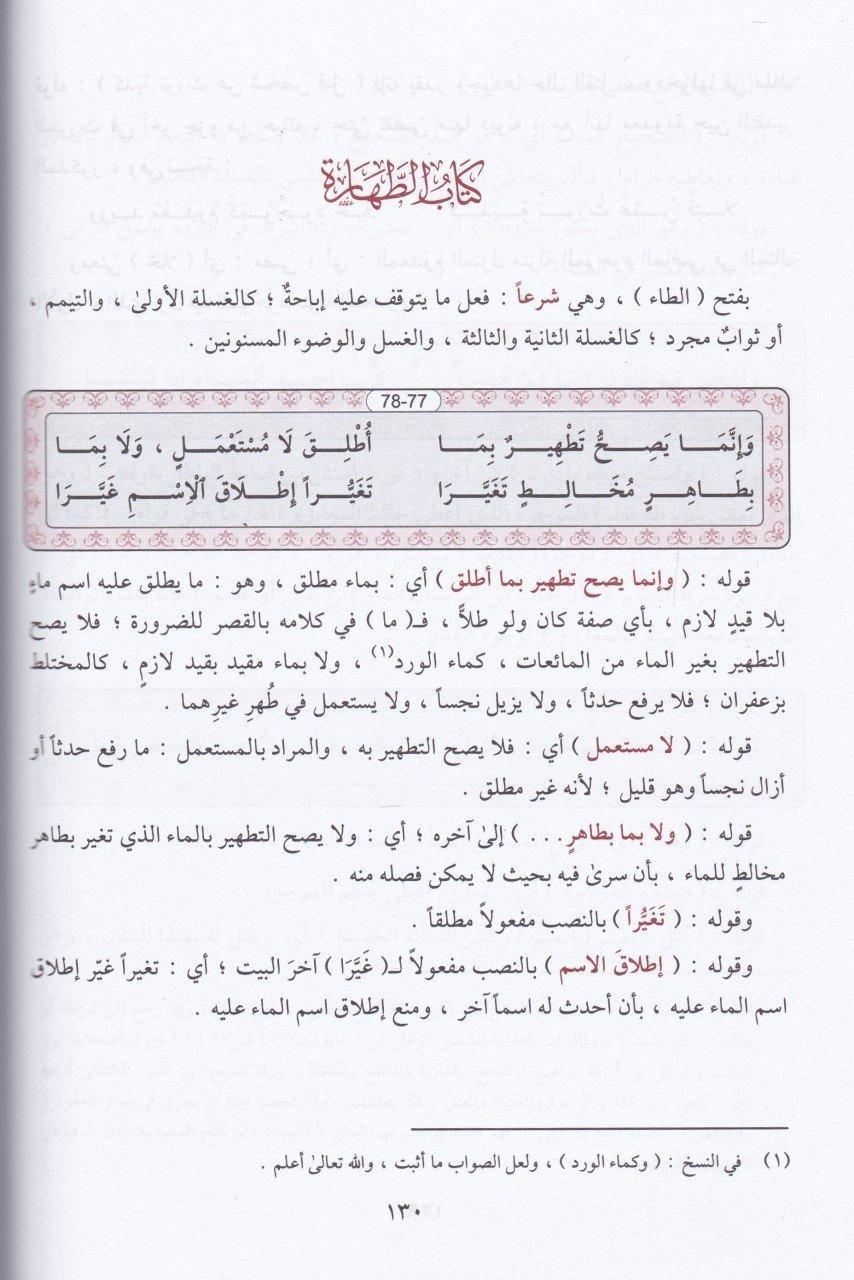 كتاب الطهارة
بفتح ( الطاء ) ، وهي شرعاً : فعل ما يتوقف عليه إباحةٌ ؛ كالغسلة الأولىٰ ، والتيمم ،
أو ثوابٌ مجرد ؛ كالغسلة الثانية والثالثة ، والغسل والوضوء المسنونين .
78-77
وَإِنَّمَا يَصِحُّ تَطْهِيرٌ بِمَا أُطْلِقَ لَا مُسْتَعْمَلٍ ، وَلَا بِمَا
بِطَاهِرٍ مُخَالِطٍ تَغَيَّرَا تَغَيُّراً إِطْلَاقَ ٱلْاِسْمِ غَيَّرَا
قوله : ( وإنما يصح تطهير بما أطلق ) أي : بماء مطلق ، وهو : ما يطلق عليه اسم ماءٍ
بلا قيدٍ لازم ، بأي صفة كان ولو طلاًّ ، فـ( ما ) في كلامه بالقصر للضرورة ؛ فلا يصح
التطهير بغير الماء من المائعات ، كماء الورد(١) ، ولا بماء مقيد بقيد لازمٍ ، كالمختلط
بزعفران ؛ فلا يرفع حدثاً ، ولا يزيل نجساً ، ولا يستعمل في طُهرِ غيرِهما .
قوله : ( لا مستعمل ) أي : فلا يصح التطهير به ، والمراد بالمستعمل : ما رفع حدثاً أو
أزال نجساً وهو قليل ؛ لأنه غير مطلق .
قوله : ( ولا بما بطاهرٍ . . . ) إلىٰ آخره ؛ أي : ولا يصح التطهير بالماء الذي تغير بطاهر
مخالطٍ للماء ، بأن سرىٰ فيه بحيث لا يمكن فصله منه .
وقوله : ( تَغَيُّراً ) بالنصب مفعولاً مطلقاً .
وقوله : ( إطلاقَ الاسم ) بالنصب مفعولاً لـ( غَيَّرَا ) آخرَ البيت ؛ أي : تغيراً غيّر إطلاق
اسم الماء عليه ، بأن أحدث له اسماً آخر ، ومنع إطلاق اسم الماء عليه .
(١) في النسخ : ( وكماء الورد ) ، ولعل الصواب ما أثبت ، والله تعالىٰ أعلم .
١٣٠